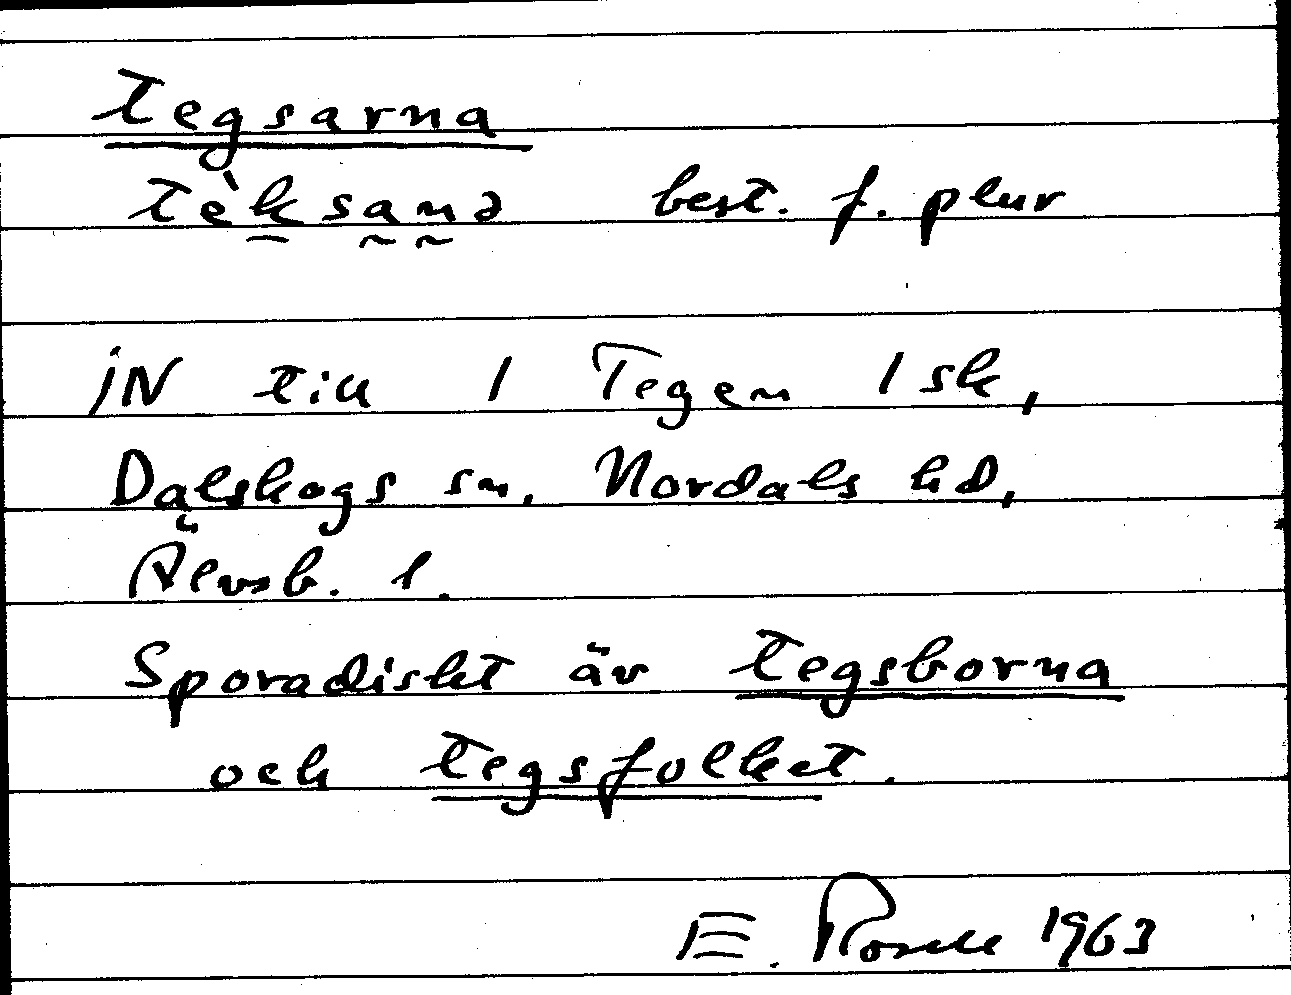 tegsarna
tèksanə best. f. plur
iN till 1 Tegen 1 sk,
Dalskogs sn, Nordals hd,
Älvsb. l.
Sporadiskt äv tegsborna
och tegsfolket.
E. Rosell 1963